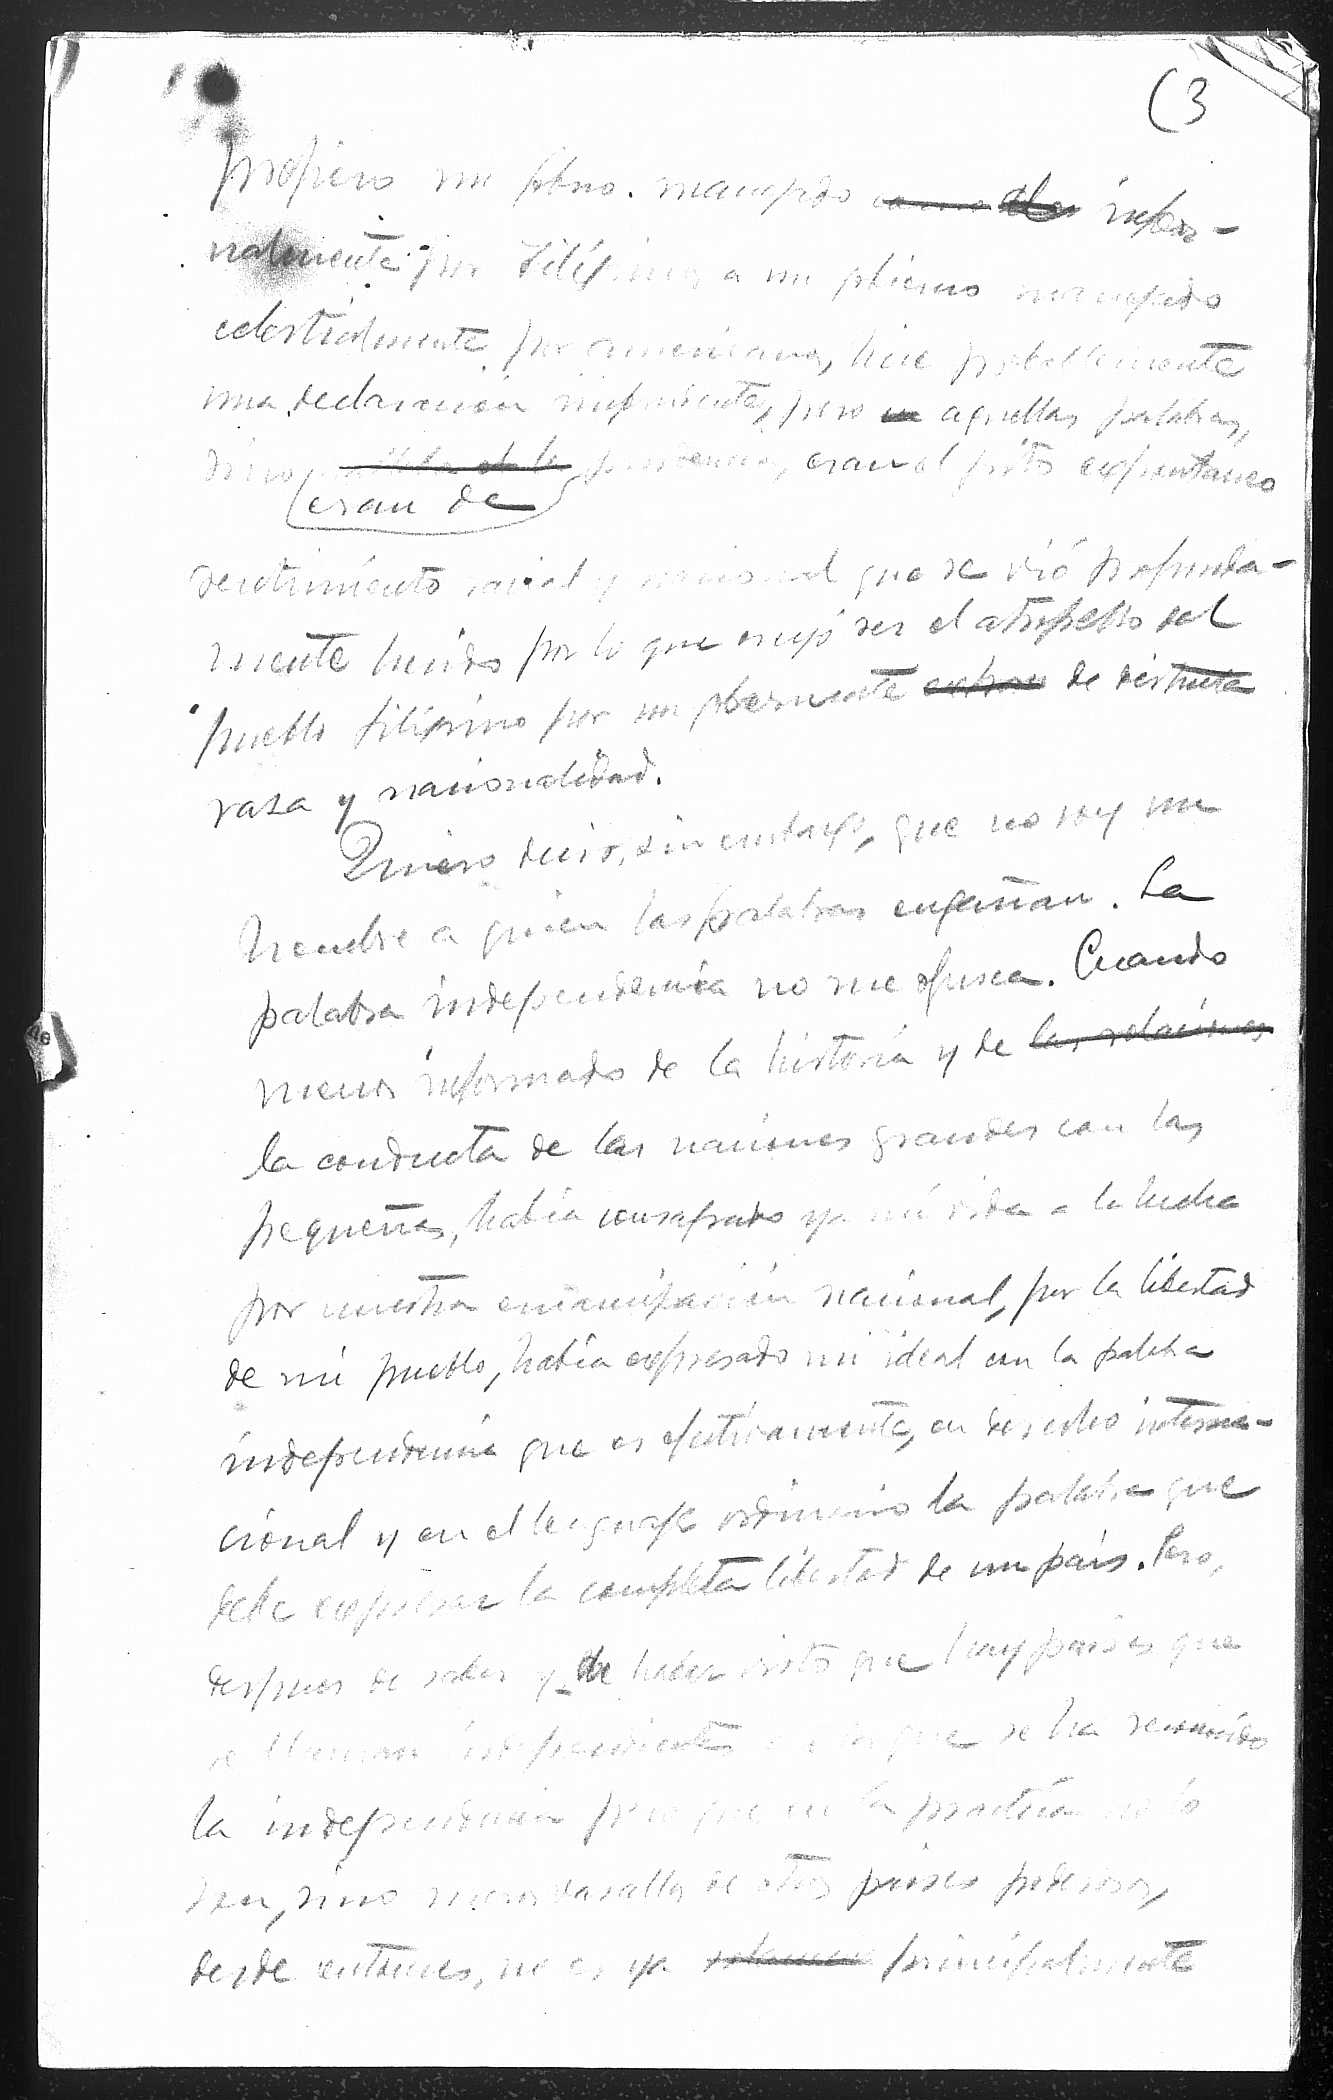 (3
prefiero un gobno. manejado infer-
nalmente por Filipinos a un gobierno manejado
celestialmente por americanos, hice probablemente
una declaración imprudente, pero aquellas palabras,
sino eran de prudencia, eran el grito expontaneo
sentimiento racial y nacional que se vió profunda-
mente herido por lo que creyó ser el atropello del
pueblo filipino por un gobernante de distinta
raza y nacionalidad.
Quiero decir, sin embargo, que no soy un
hombre a quien las palabras engañan. La
palabra independencia no me ofusca. Cuando
menos informado de la historia y de las relaciones
la conducta de las naciones grandes con las
pequeñas, había consagrado ya mi vida a la lucha
por nuestra emancipación nacional, por la libertad
de mi pueblo, había expresado mi ideal con la palabra
independencia que es efectivamente, en derecho interna-
cional y en el lenguaje ordinario la palabra que
debe expresar la completa libertad de un país. Pero,
despues de saber y de haber visto que hay paises que
se llaman independientes que se ha reconocido
la independencia pero que en la practica no lo
son, sino meros vasallos de otros paises poderosos,
desde entonces, no es ya principalmente